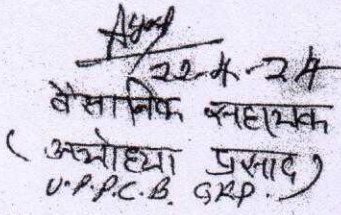 22-4-24
वैज्ञानिक सहायक
(अयोध्या प्रसाद)
U.P.P.C.B. GKP.